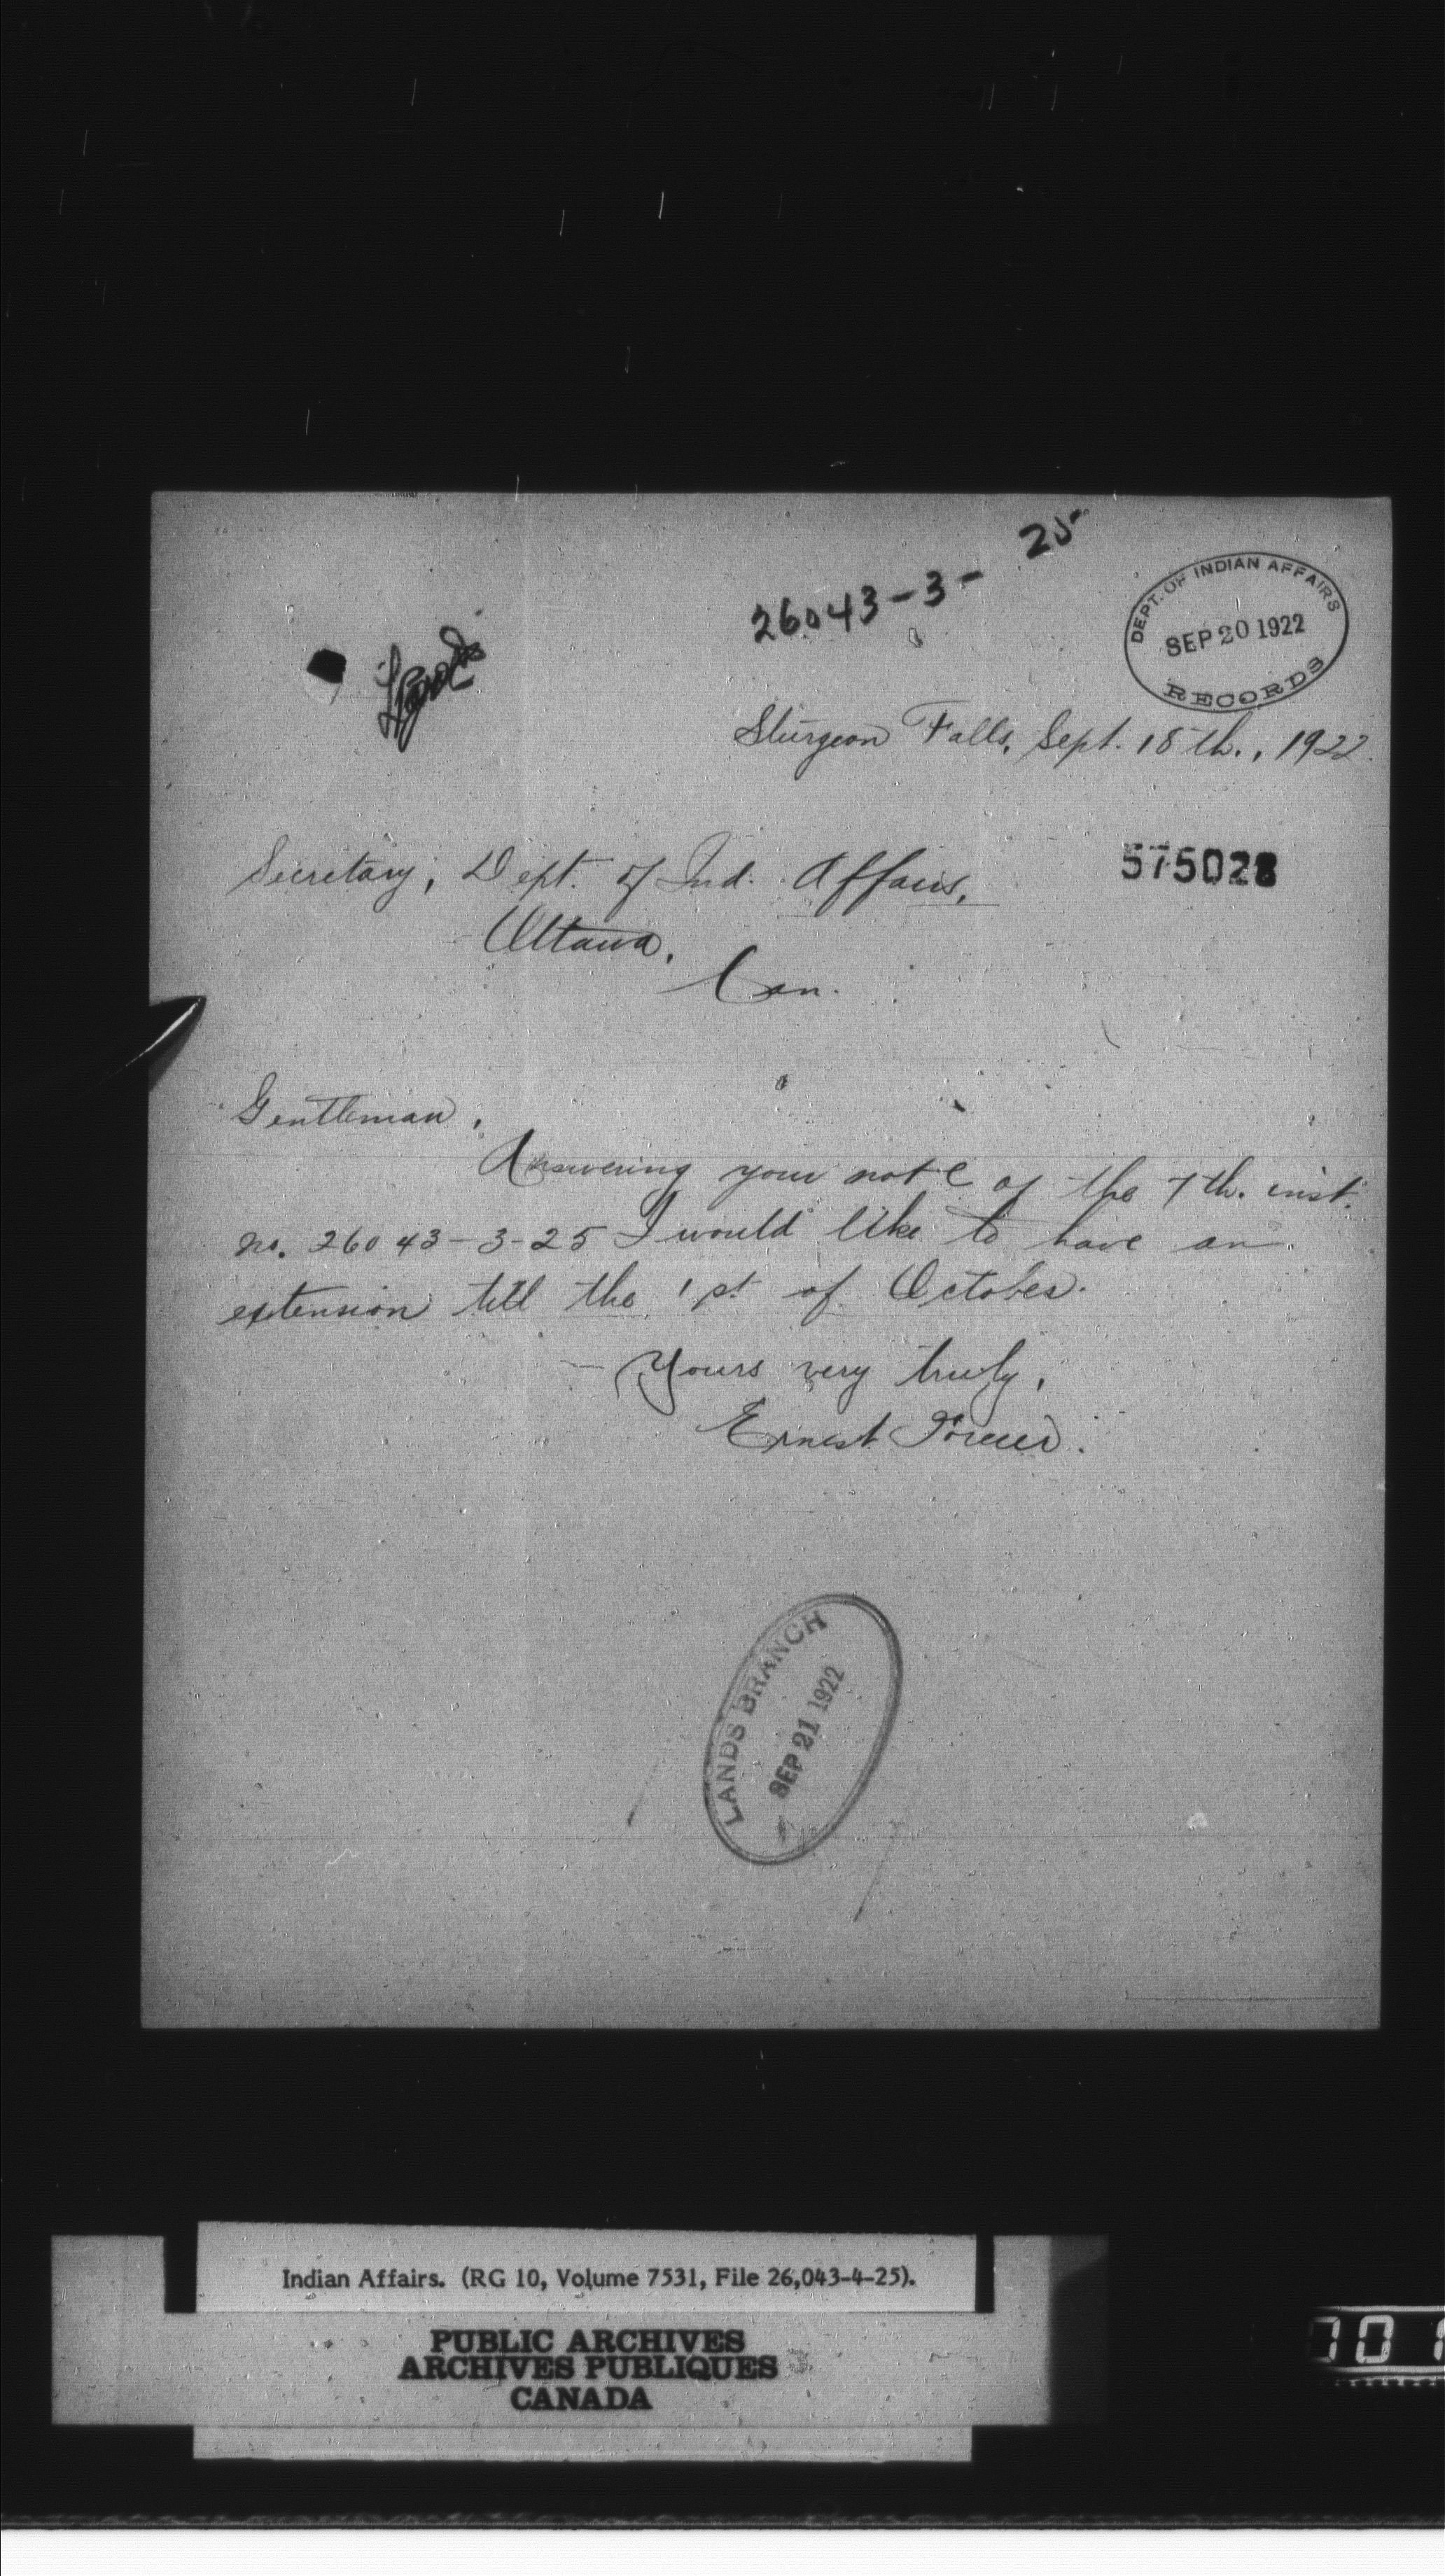 26043-3-25
DEPT. OF INDIAN AFFAIRS
SEP 20 1922
RECORDS
Sturgeon Falls, Sept. 18th., 1922.
575028
Secretary, Dept. of Ind. Affairs,
Ottawa,
Can.
Gentleman,
Answering your note of the 7th. inst.
no. 26043-3-25 I would like to have an
extension till the 1st of October.
Yours very truly,
Ernest
LANDS BRANCH
SEP 21 1922
Indian Affairs. (RG 10, Volume 7531, File 26,043-4-25).
PUBLIC ARCHIVES
ARCHIVES PUBLIQUES
CANADA